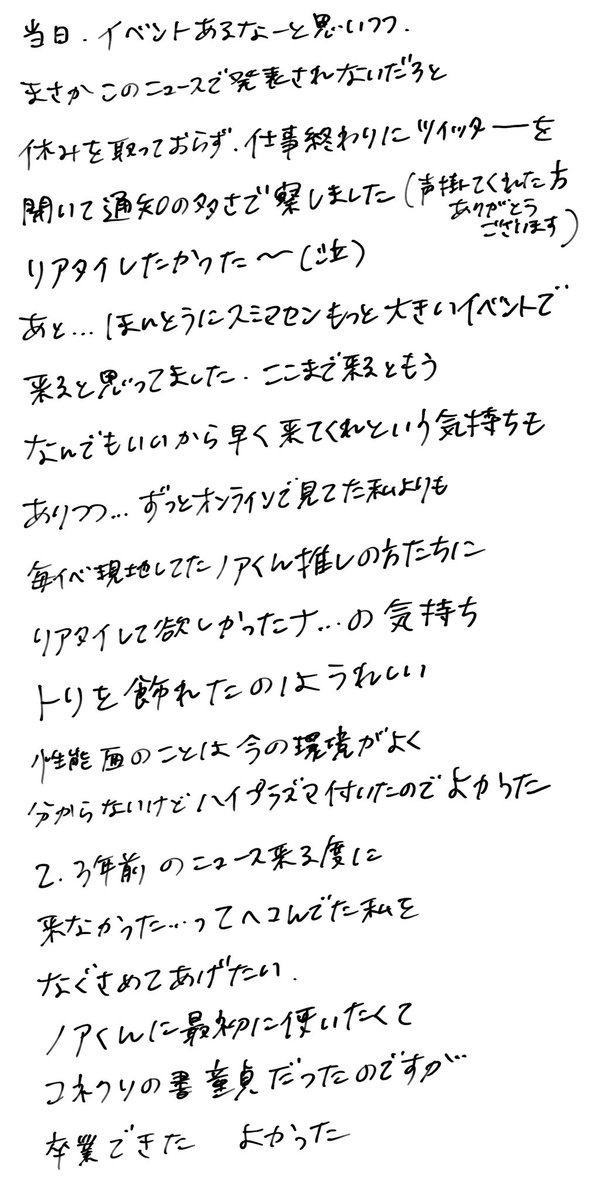 当日.イベントあるなーと思いつつ.
まさかこのニュースで発表されないだろと
休みを取っておらず.仕事終わりにツイッターを
開いて通知の多さで察しました(声掛てくれた方
ありがとう
ございます)
リアタイしたかった〜(泣)
あと…ほんとうにスミマセンもっと大きいイベントで
来ると思ってました.ここまで来るともう
なんでもいいから早く来てくれという気持ちも
ありつつ…ずっとオンラインで見てた私よりも
毎イベ現地してたノアくん推しの方たちに
リアタイして欲しかったナ…の気持ち
トリを飾れたのはうれしい
性能面のことは今の環境がよく
分からないけどハイプラズマ付いたのでよかった
2.3年前のニュース来る度に
来なかった…ってヘコんでた私を
なぐさめてあげたい.
ノアくんに最初に使いたくて
コネクリの書童貞だったのですが
卒業できた よかった